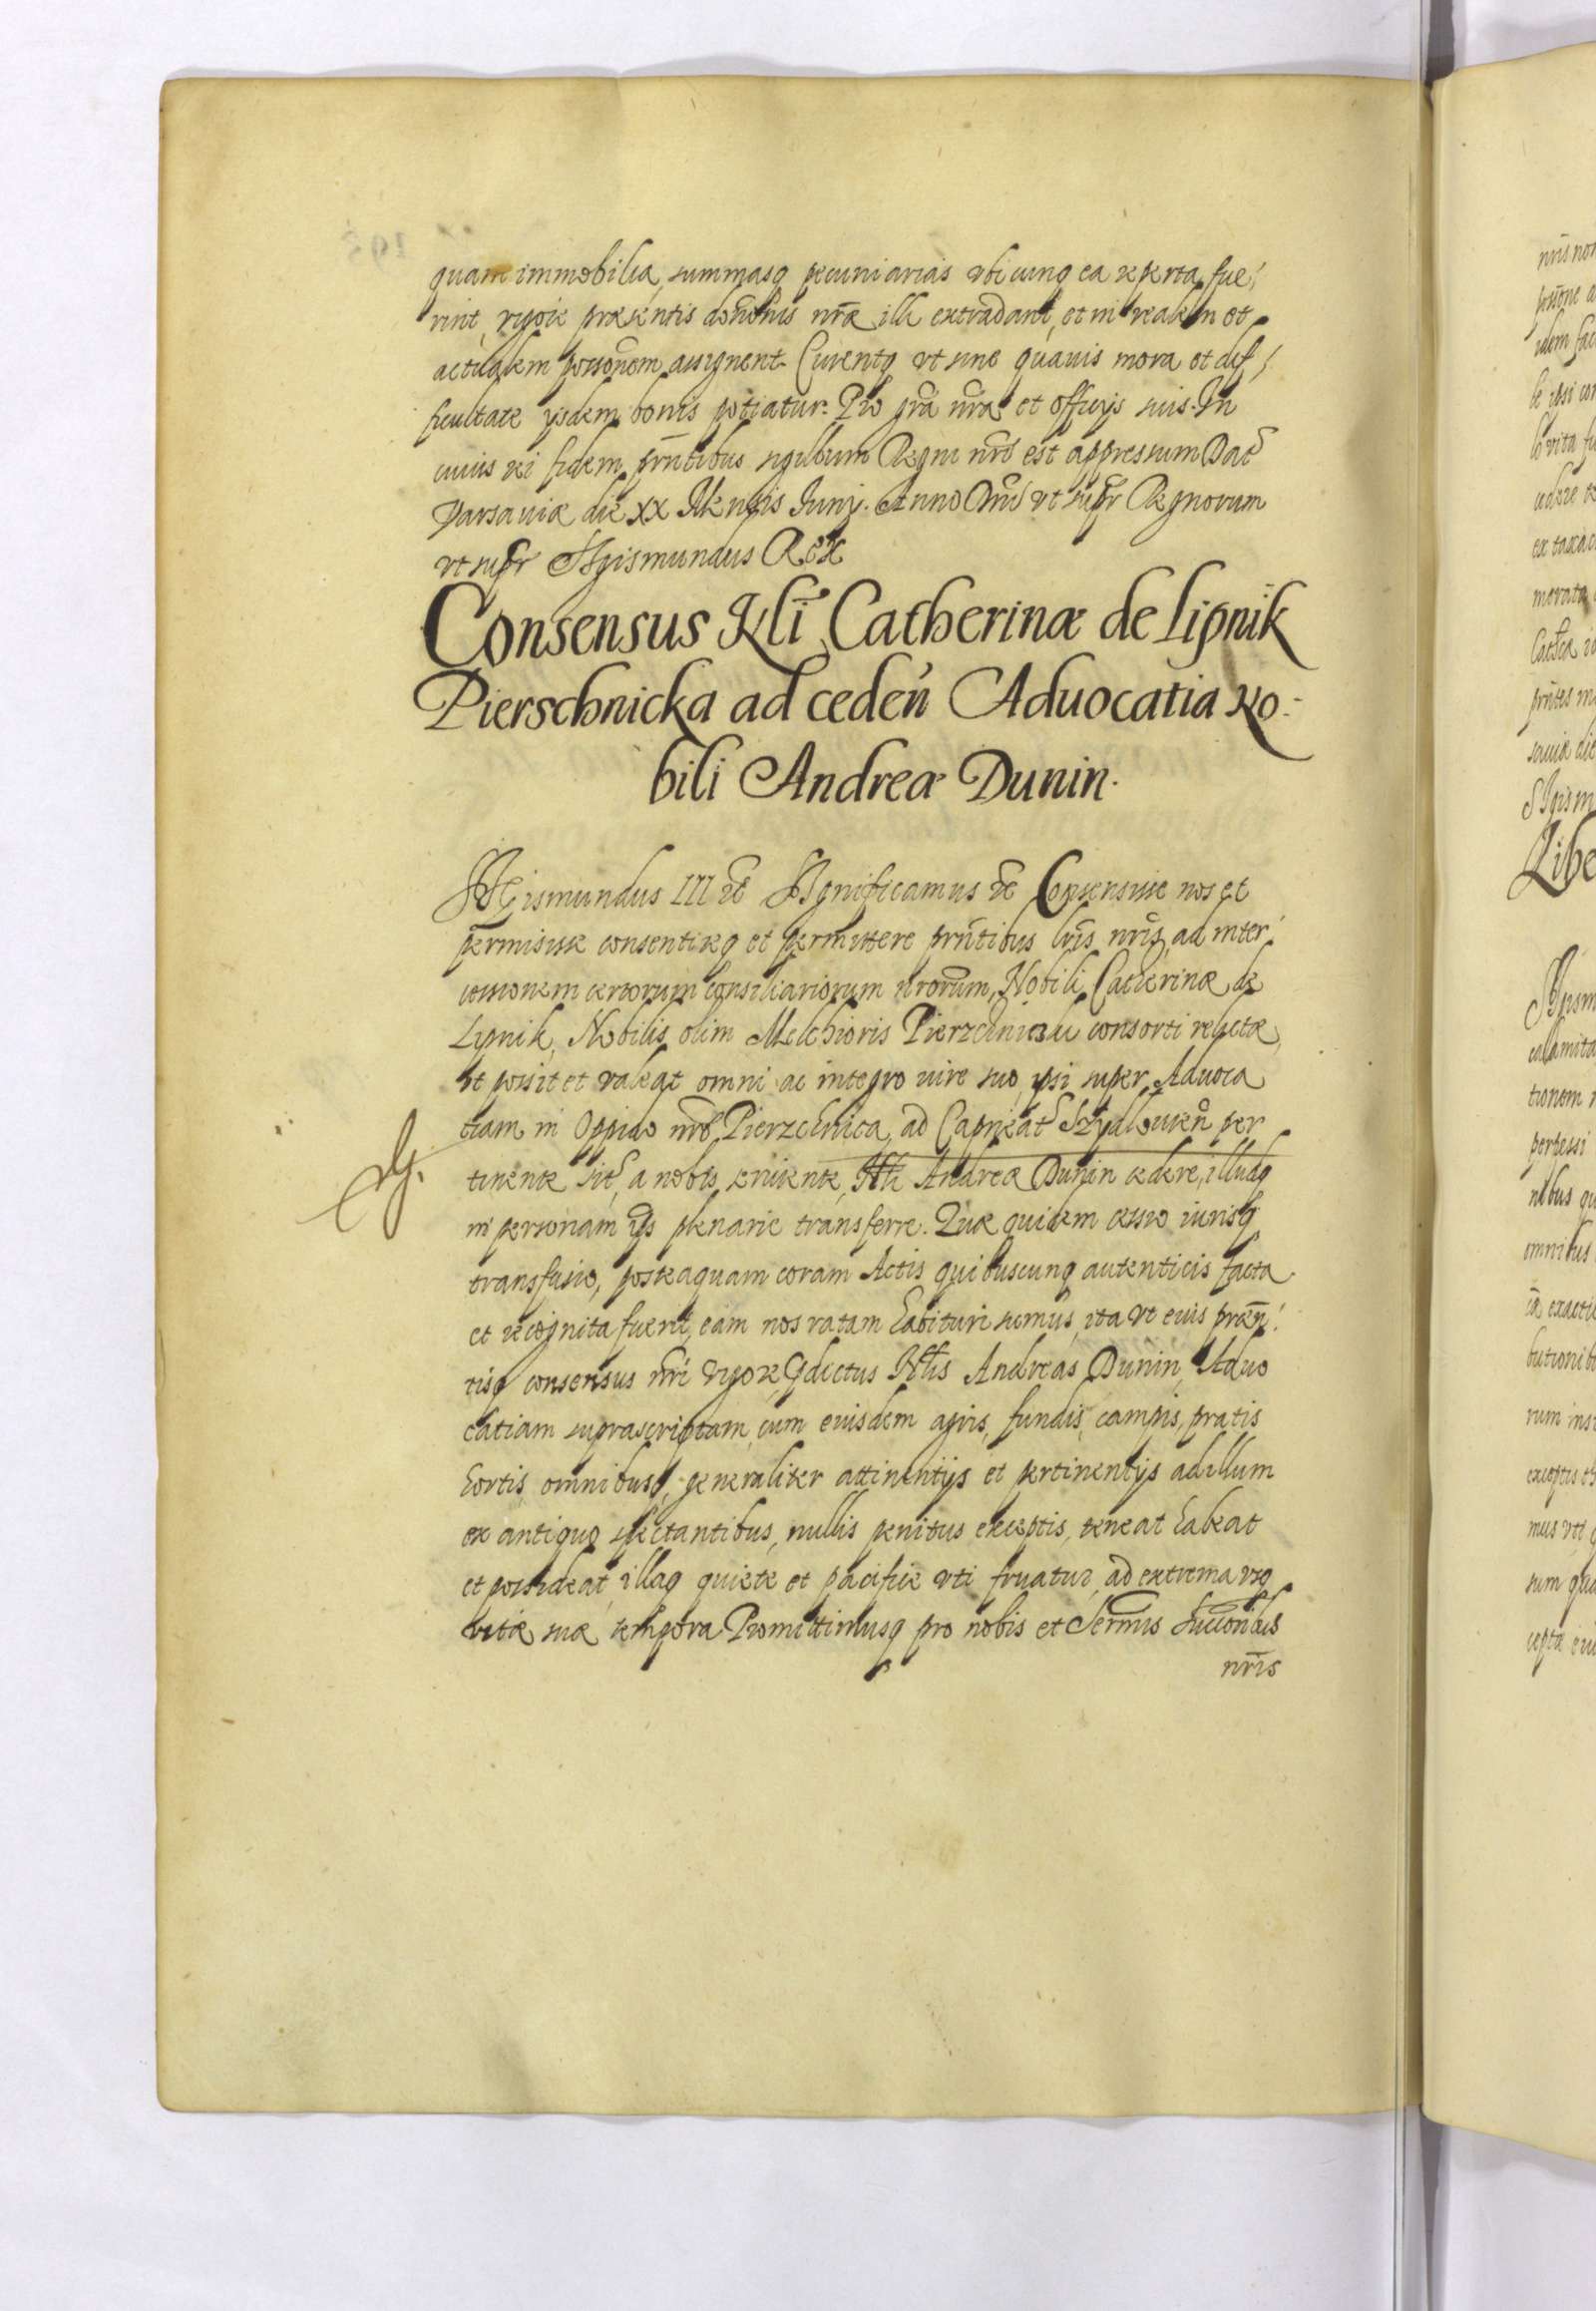 quam immobilia, summasq pecuniarias vbicunq ea reperta fue,
rint, vigore præsentis donōnis nr̃æ illi extradant, et in realem et
actualem possonem assignent. Curentq vt sine quauis mora et dif,
ficultate ysdem bonis potiatur. Pro gr̃a nr̃a et officijs suis. In
cuius rei fidem prñtibus sigillum Regni nr̃i est appressum Dat̃
Varsauiæ die XX Mensis Iunij. Anno Dñi vt supr Regnorum
vt supr Sigismundus Rex
Consensus Nli Catherinæ de Lipnik
Pierschnicka ad ceden Aduocatia No-
bili Andreæ Dunin.
Sigismundus III etc̃ Significamus etc̃ Consensisse nos et
permisisse consentireq et permittere prñtibus lr̃is nr̃is, ad inter
cessionem certorum Consiliariorum nrorum, Nobili Catherinæ de
Lypnik, Nobilis olim Melchioris Pierzchniczki consorti relictæ,
vt possit et valeat omni ac integro iure suo, ipsi super Aduoca
tiam in Oppido nr̃o Pierzchnica, ad Capneat Szydlouien per
tinente sit̃, a nobis seruiente, Nli Andreæ Dunin cedere, illudq
in personam eius plenarie transferre. Quæ quidem cessio iurisq
transfusio, posteaquam coram Actis quibuscunq autenticis facta
et recognita fuerit, eam nos ratam habituri sumus, ita vt euis præn
tisq consensus nr̃i vigore, predictus Nlis Andreas Dunin, Aduo
catiam suprascriptam, cum euisdem agris, fundis, campis, pratis
hortis, omnibusq, generaliter attinentijs et pertinentijs ad illum
ex antiquo spectantibus, nullis penitus exceptis, teneat habeat
et possideat, illaq quiete et pacifice vti fruatur, ad extrema vsq
vitæ suæ tempora Promittimusq pro nobis et Sermis Succoribus
nr̃is